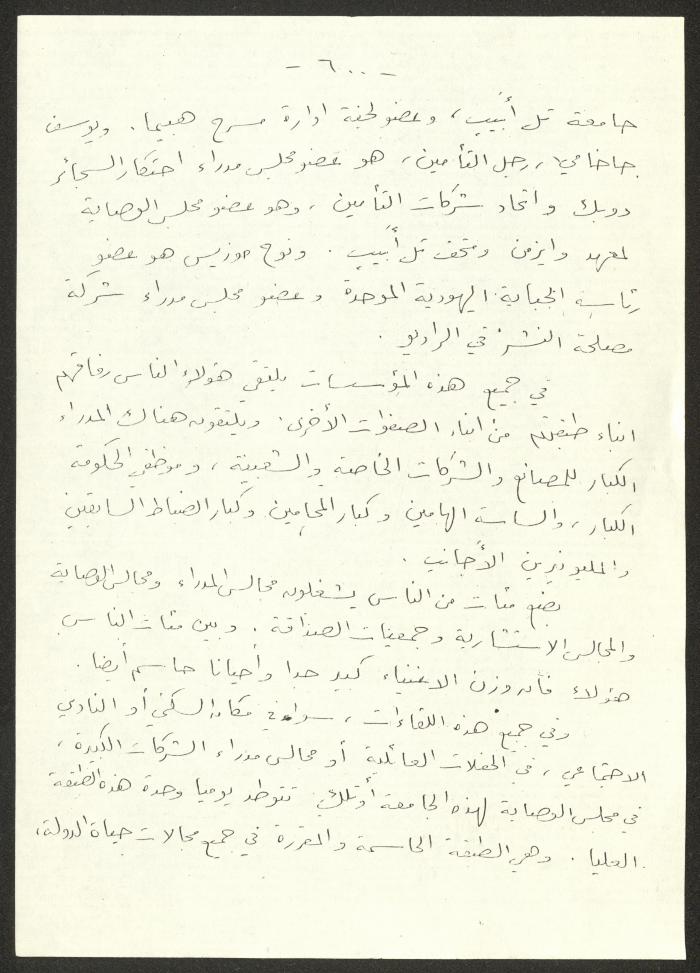 - ٦٠٠ -
جامعة تل أبيب، وعضو لجنة ادارة مسرح هبيما. ويوسف
جاخامي، رجل التأمين، هو عضو مجلس مدراء احتكار السجائر
دوبك واتحاد شركات التأمين، وهو عضو مجلس الوصاية
لمعهد وايزمن ومتحف تل أبيب. ونوح موزيس هو عضو
رئاسة الجباية اليهودية الموحدة وعضو مجلس مدراء شركة
مصلحة النشر في الراديو.
في جميع هذه المؤسسات يلتقي هؤلاء الناس رفاقهم
ابناء طبقتهم من ابناء الصفوات الأخرى. ويلتقون هناك المدراء
الكبار للمصانع والشركات الخاصة والشعبية، وموظفي الحكومة
الكبار، والساسة الهامين وكبار المحامين وكبار الضباط السابقين
والمليونيرين الأجانب.
بضع مئات من الناس يشغلون مجالس المدراء ومجالس الوصاية
والمجالس الاستشارية وجمعيات الصداقة. وبين مئات الناس
هؤلاء فان وزن الاغنياء كبير جدا وأحيانا حاسم أيضا.
وفي جميع هذه اللقاءات، سواء في مكان السكنى أو النادي
الاجتماعي، في الحفلات العائلية أو مجالس مدراء الشركات الكبيرة،
في مجلس الوصاية لهذه الجامعة أو تلك تتوطد يوميا وحدة هذه الطبقة
العليا. وهي الطبقة الحاسمة والمقررة في جميع مجالات حياة الدولة،